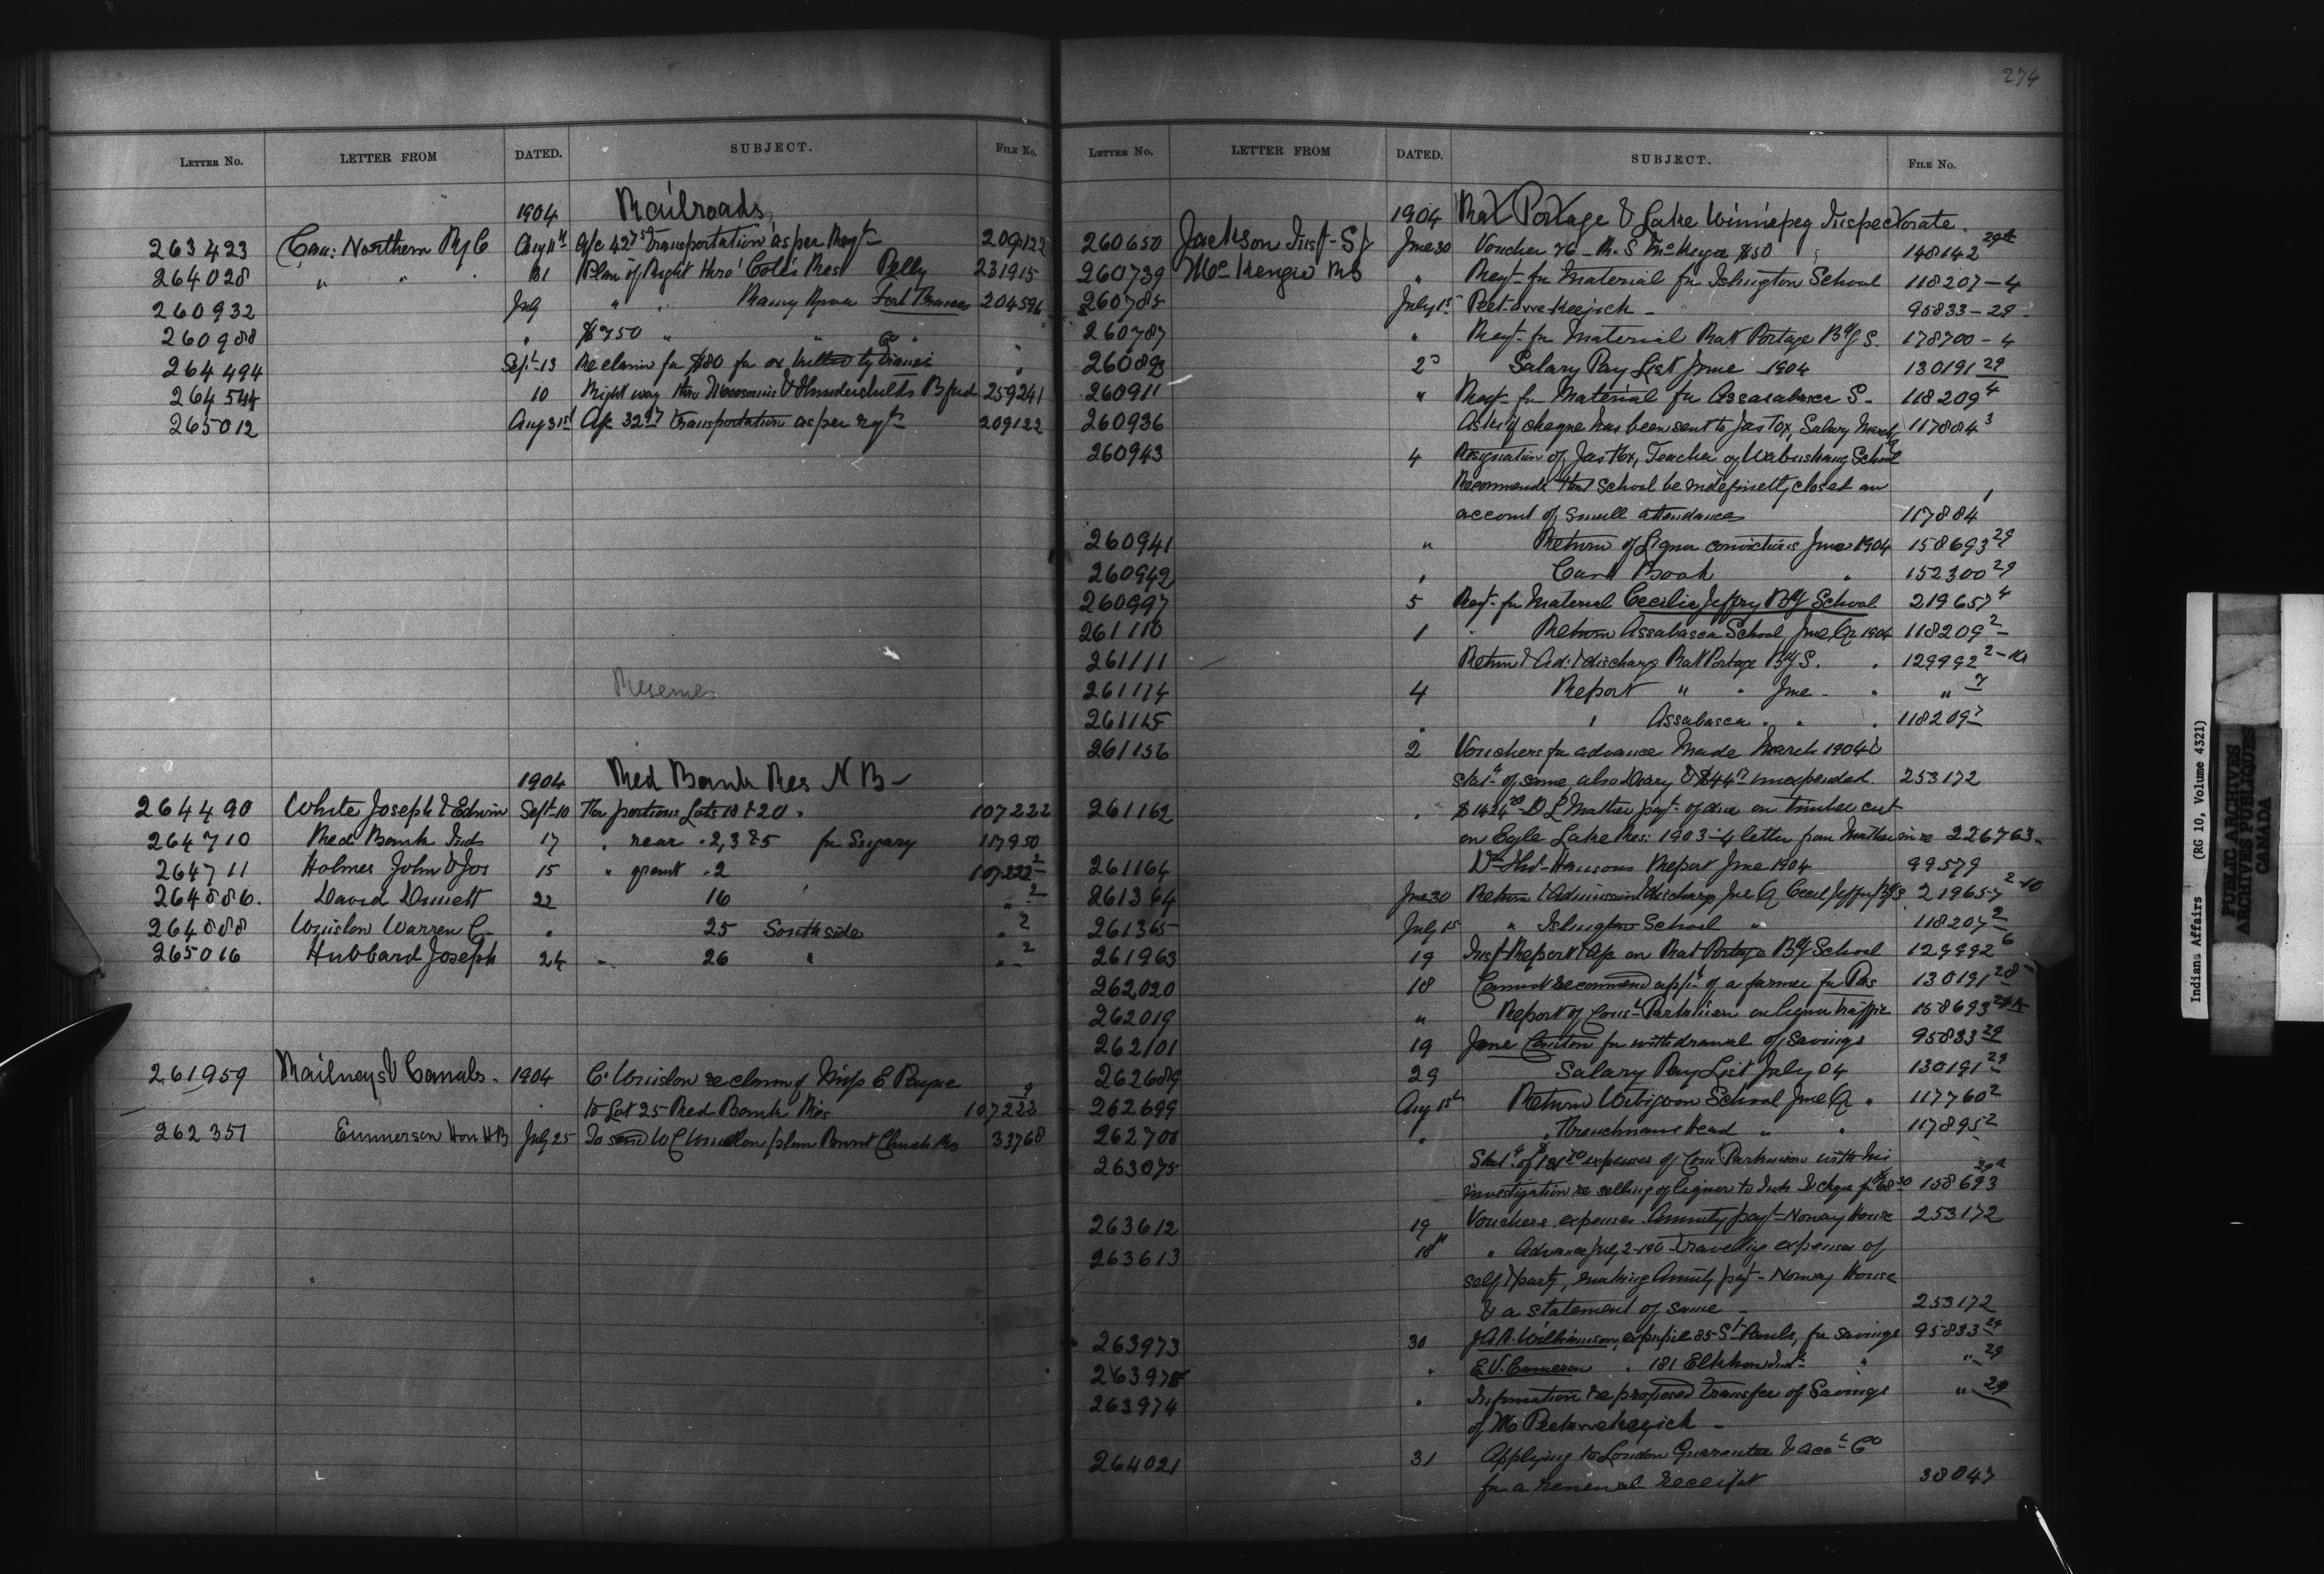 274
LETTER NO. LETTER FROM DATED. SUBJECT. FILE NO.
1904 Railroads
263423 Can: Northern Ry Co Aug 11th a/c 42 75 Transportation as per Reqt 209122
264028 " " 31 Plan of Right thro' Cote's Res Pelly 231915
260932 July " " Rainy River Fort Frances 204596
260988 " $750 " " "
264494 Sept 13 Re claim for $80 for ox killed by
264544 10 Right way thro Moosomin & Thunderchilds Bfud 259241
265012 Aug 31st A/c 32 97 transportation as per rqt 209122
Reserves
1904 Red Bank Res N B
264490 White Joseph & Edwin Sept 10 portions Lots 18 & 20 107222
264710 Red Bank Inds 17 " rear " 2, 3 & 5 for Sugary 117950
264711 Holmes John & Jos 15 " grant " 2 107222 2
264886 David Dunnett 22 16 " 2
264888 Winslow Warren C " 25 South side " 2
265016 Hubbard Joseph 24 26 " " 2
261959 Railways & Canals 1904 C. Winslow re claim of Miss E Payne
to Lot 25 Red Bank Res 107222 2
262351 Emmerson Hon HB July 25 To send W C Winslow plan Church Res 33768
LETTER NO. LETTER FROM DATED. SUBJECT. FILE NO.
1904 Rat Portage & Lake Winnipeg Inspectorate.
260650 Jackson Insp. S J June 30 Voucher 76 - R. S. McKenzie $50 148142 29A
260739 McKenzie RS " Reqt for Material for Islington School 118207-4
260785 July 1st Peet-a-we-keejick 95833-29
260787 " Reqt for Material Rat Portage Bdg S. 178700-4
260893 2d Salary Pay List June 1904 130191 29
260911 " Reqt for Material for Assabasca S. 118209 4
260936 Asks if cheque has been sent to Jas Fox, Salary March 117884 3
260943 4 Resignation of Jas Fox, Teacher of Wabuskang School
Recommends that School be indefinitely closed on
account of small attendance 117884 1
260941 " Return of Liquor convictions June 1904 158693 29
260942 " Cash Book " 152300 29
260997 5 Reqt for Material Cecilia Jeffrey Bdg School 219657 4
261110 1 Return Assabasca School June Qr 1904 118209 2
261111 Return & Ad: & discharge Rat Portage Bdg S. " 129992 2-10
261114 4 Report " " June " " 7
261115 " " Assabasca " " " 118209 7
261156 2 Vouchers for advance made March 1904 &
Statt of same also Diary & $44 17 unexpended 253172
261162 " $1424 20 D L Mather payt of due on timber cut
on Eagle Lake Res: 1903-4 letter from Mather in re 226763
261164 Dr Hansons Report June 1904 99579
261364 June 30 Return & Admission & discharge June Q Cecil Jeffrey Bdg S 219657 2-10
261365 July 15 " Islington School " 118207 2
261963 19 Insp Report & a/c on Rat Portage Bdg School 129992 6
262020 18 Cannot recommend appt of a farmer for Res 130191 28
262019 " Report of Cons. Parkinson on liquor traffic 158693
262101 19 Jane Linton for withdrawal of Savings 95833 29
262689 29 Salary Pay List July 04 130191 29
262699 Aug 1st Return Wabigoon School June Q " 117760 2
262700 " " Frenchmans Head " " 117895 2
263075 Statt of $121 20 expenses of Con. Parkinson with his
investigation re selling of liquor to Inds & cheque for $68 30 158693 29A
263612 19 Vouchers expenses Annuity payt Norway House 253172
263613 18th " Advance July 2-190- travelling expenses of
self & party, making Annuity payt Norway House
& a statement of same 253172
263973 30 J.A.A. Williamson, expupil 85 St Pauls, for savings 95833 29
263975 " E.V. Cameron " 181 Elkhorn Indl " " 29
263974 " Information re proposed transfer of Savings " 29
of Mo Peetawekeejick
264021 31 Applying to London Guarantee & Acct Co
for a renewal receipt 38047
Indians Affairs (RG 10, Volume 4321)
PUBLIC ARCHIVES
ARCHIVES PUBLIQUES
CANADA